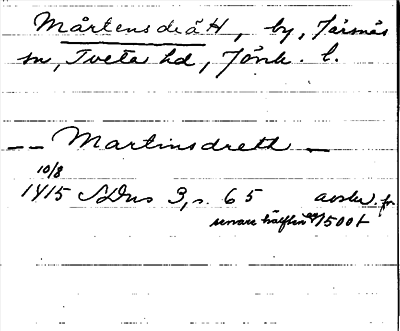 Mårtensdrätt, by, Järsnäs
sn, Tveta hd, Jönk. l.
-- Martinsdreth --
10/8
1415 SDns 3, s. 65 avskr. fr.
senare hälften av 1500 t